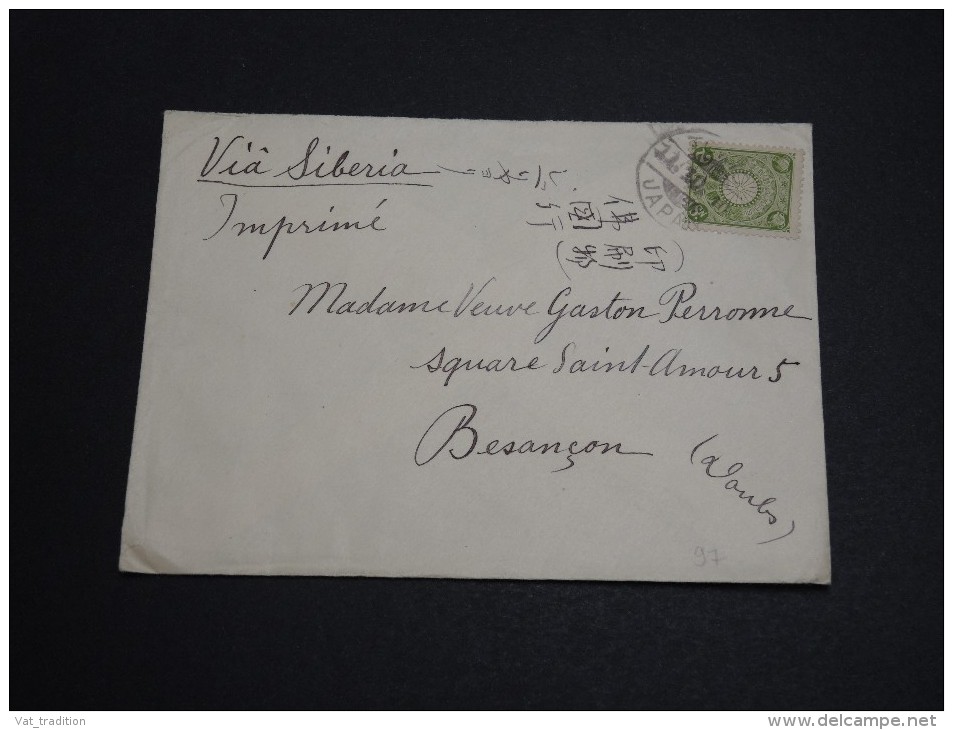 Viâ Siberia
Imprimé
佛國行
(印刷物)
JAPA
Madame Veuve Gaston Perronne
square Saint-Amour 5
Besançon
(Doubs)
97
Vat_tradition
www.delcampe.net